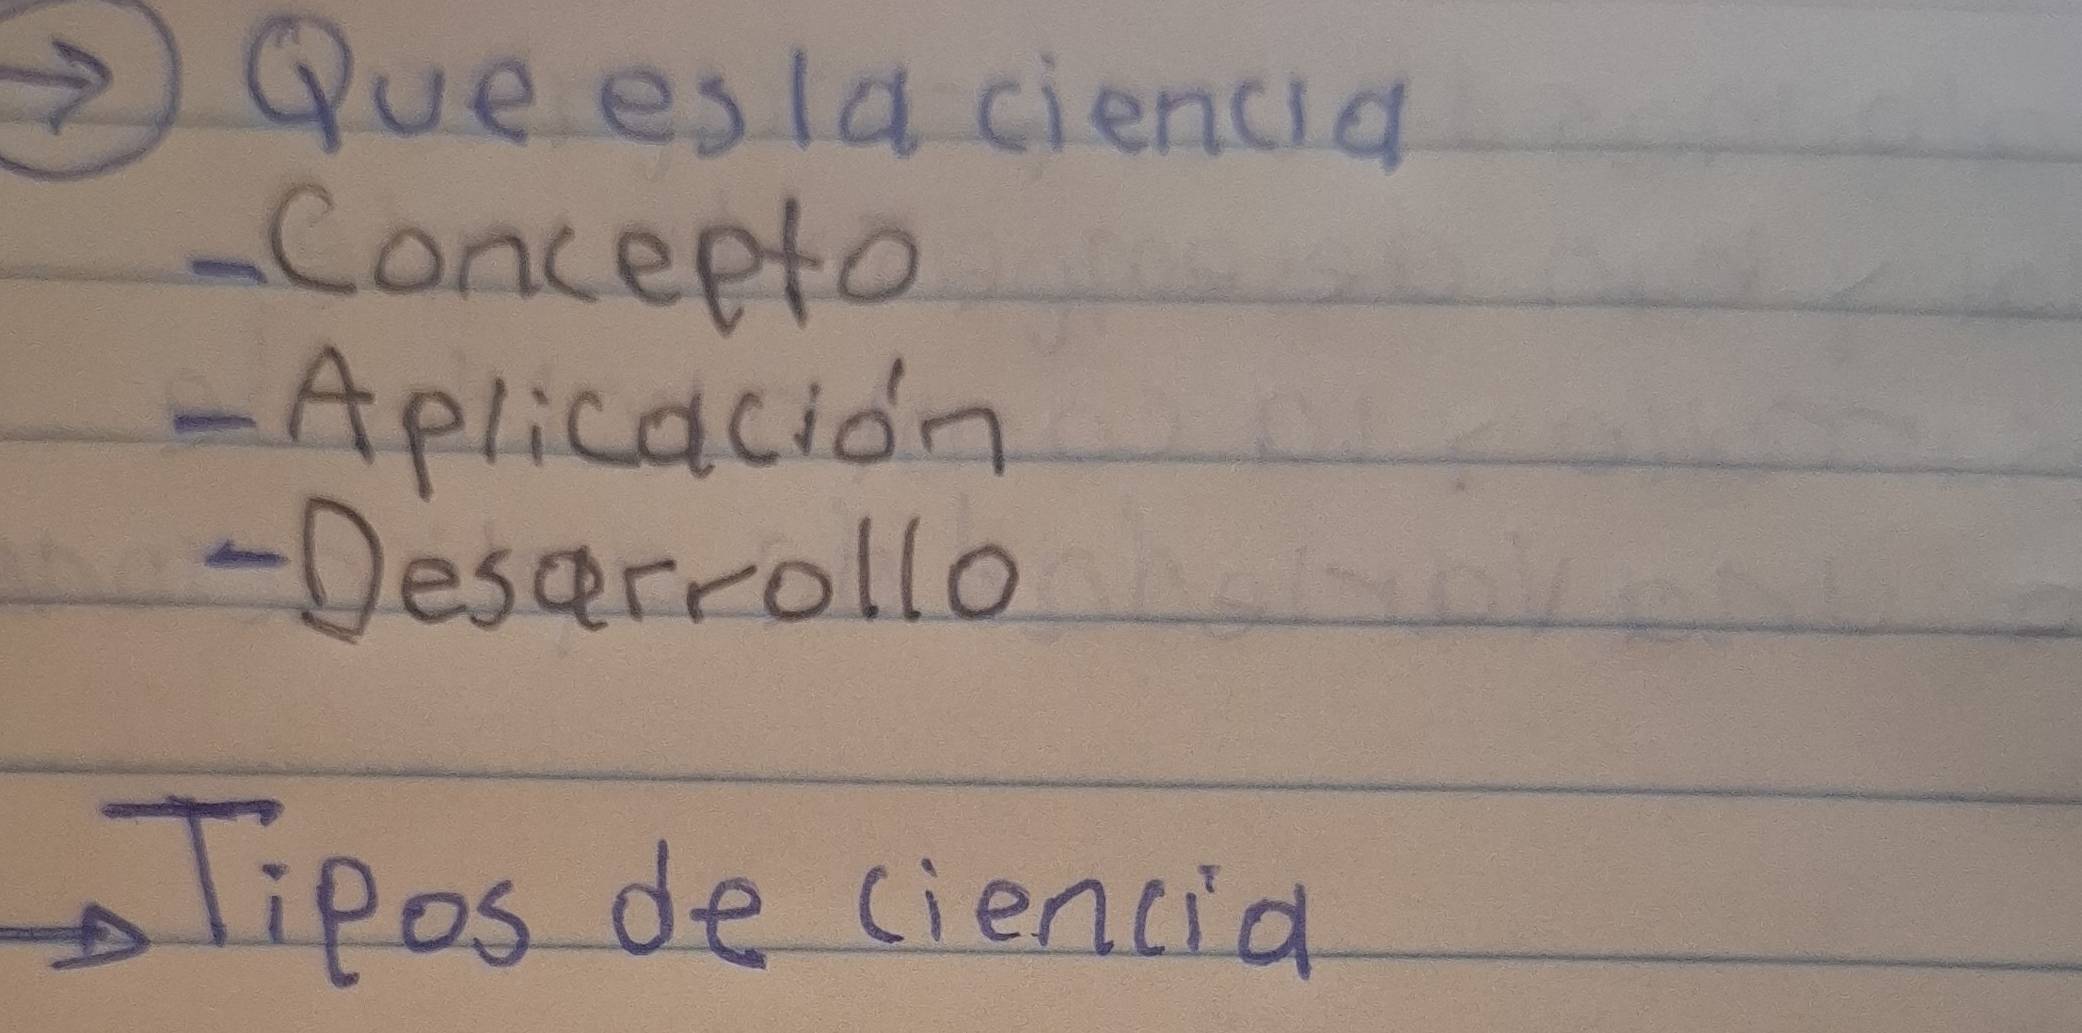 → Que es la ciencia
- Concepto
- Aplicación
- Desarrollo
→ Tipos de ciencia